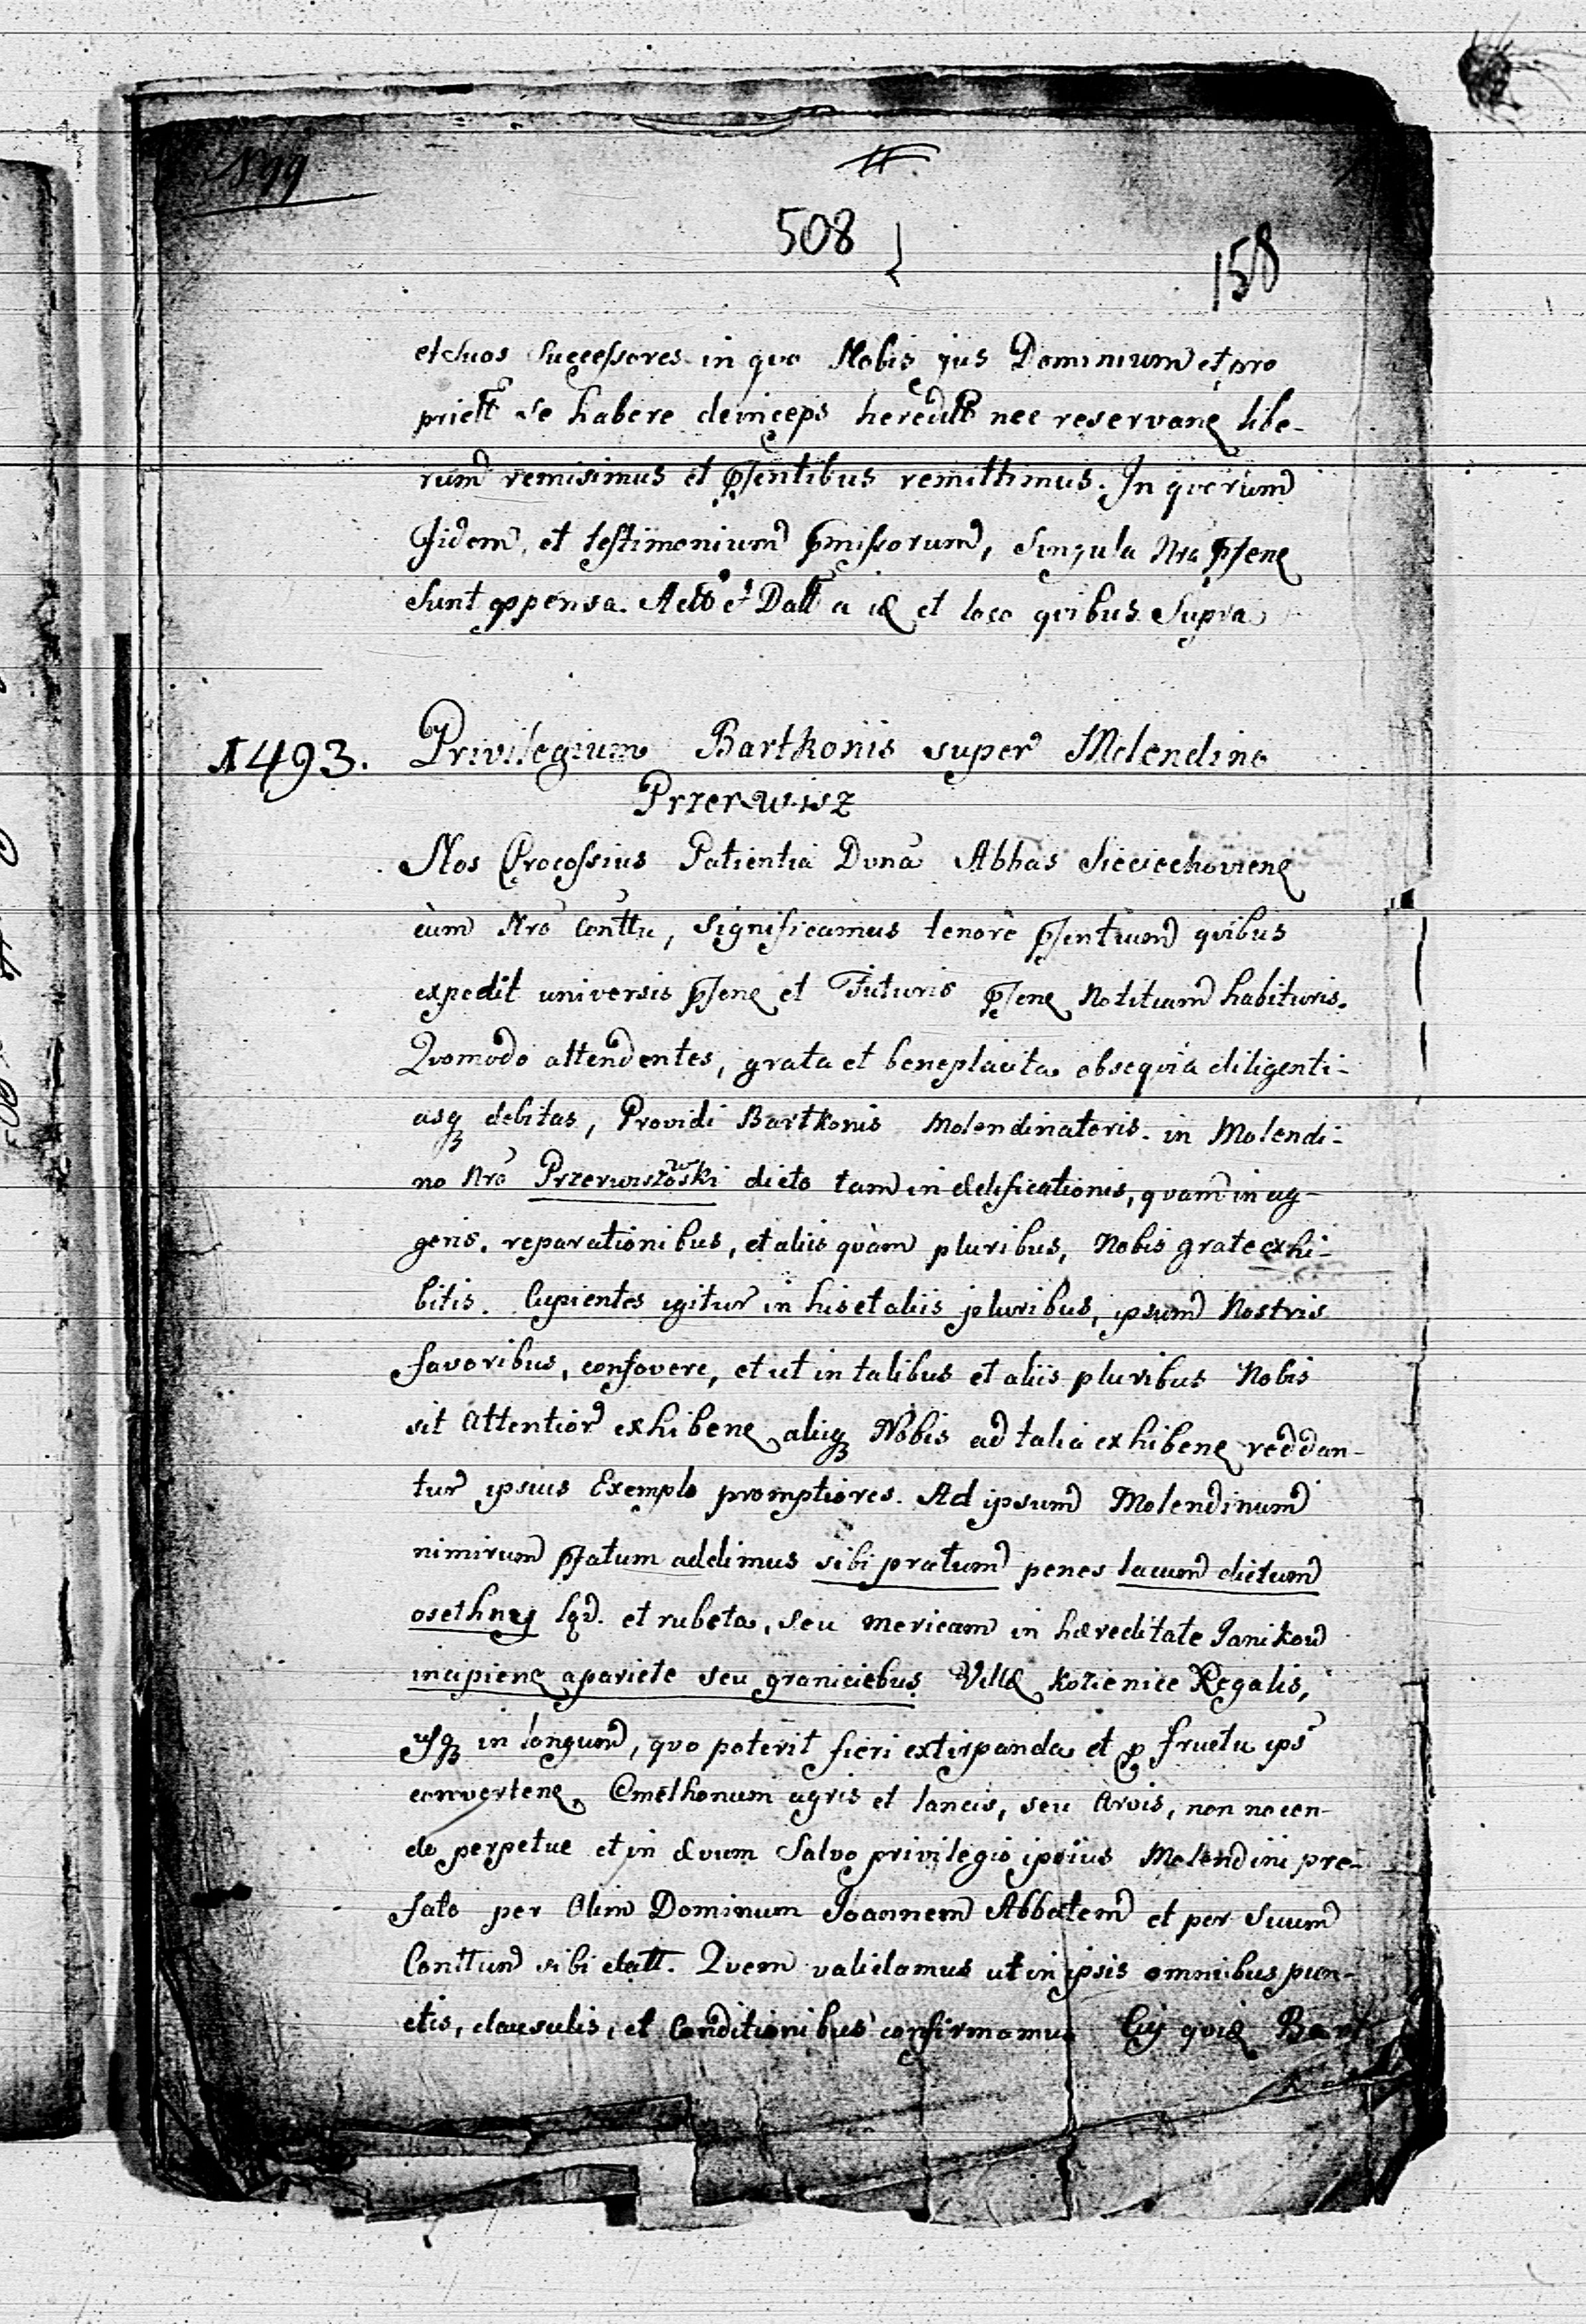 1899
508
158
et suos Successores in quo Nobis jus Dominium et pro
priett̃ se habere deinceps heredit̃t nec reservanę libe-
rum remisimus et p̃sentibus remittimus. In quorum
fidem, et testimonium p̃missorum, Singula Nrã p̃senę
sunt appensa. Actt̃ et Datt̃ a ię et loco quibus supra
1493. Privilegium Bartkonis super Molendino
Przerwisz
Nos Procossius Patientia Donã Abbas Sieciechovienę
cum Nrõ Contt̃u, significamus tenore p̃sentium quibus
expedit universis p̃senę et Futuris p̃senę Notitiam habituris.
Quomodo attendentes, grata et beneplacita obsequia diligenti-
asq3 debitas, Providi Bartkonis Molendinatoris in Molendi-
no Nrõ Przerwiszowski dicto tam in ædificationis, quam in ag-
geris. reparationibus, et aliis quàm pluribus, Nobis grate exhi-
bitis. Cupientes igitur in his et aliis pluribus, ipsum Nostris
favoribus, confovere, et ut in talibus et aliis pluribus Nobis
sit attentior exhibenę aliiq3 Nobis ad talia exhibenę reddan-
tur ipsius Exemplo promptiores. Ad ipsum Molendinum
nimirum p̃fatum addimus sibi pratum penes lacum dictum
osethny et rubeta, seu mericam in hæreditate Janikow
incipienę a pariete seu graniciebus Villę Kozienice Regalis,
usq3 in longum, quo poterit fieri extirpanda et p fructu ips̃
convertenę, Cmethonum agris et laneis, seu arvis, non nocen-
do perpetue et in ævum Salvo privilegio ipsius Molendini pre-
fato per Olim Dominum Joannem Abbatem et per Suum
Conttum sibi datt. Quem validamus ut in ipsis omnibus pun-
ctis, clausulis, et Conditionibus confirmamus Cuj quię Bart